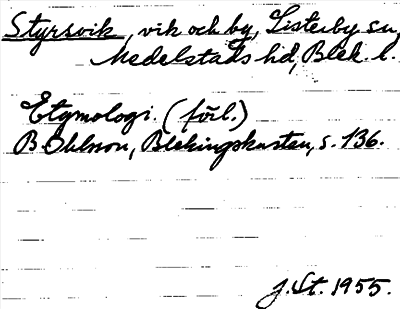 Styrsvik, vik och by, Listerby sn,
Medelstads hd, Blek. l.
Etymologi. (förl.)
B Ohlson, Blekingskusten, s. 136.
J. St. 1955.